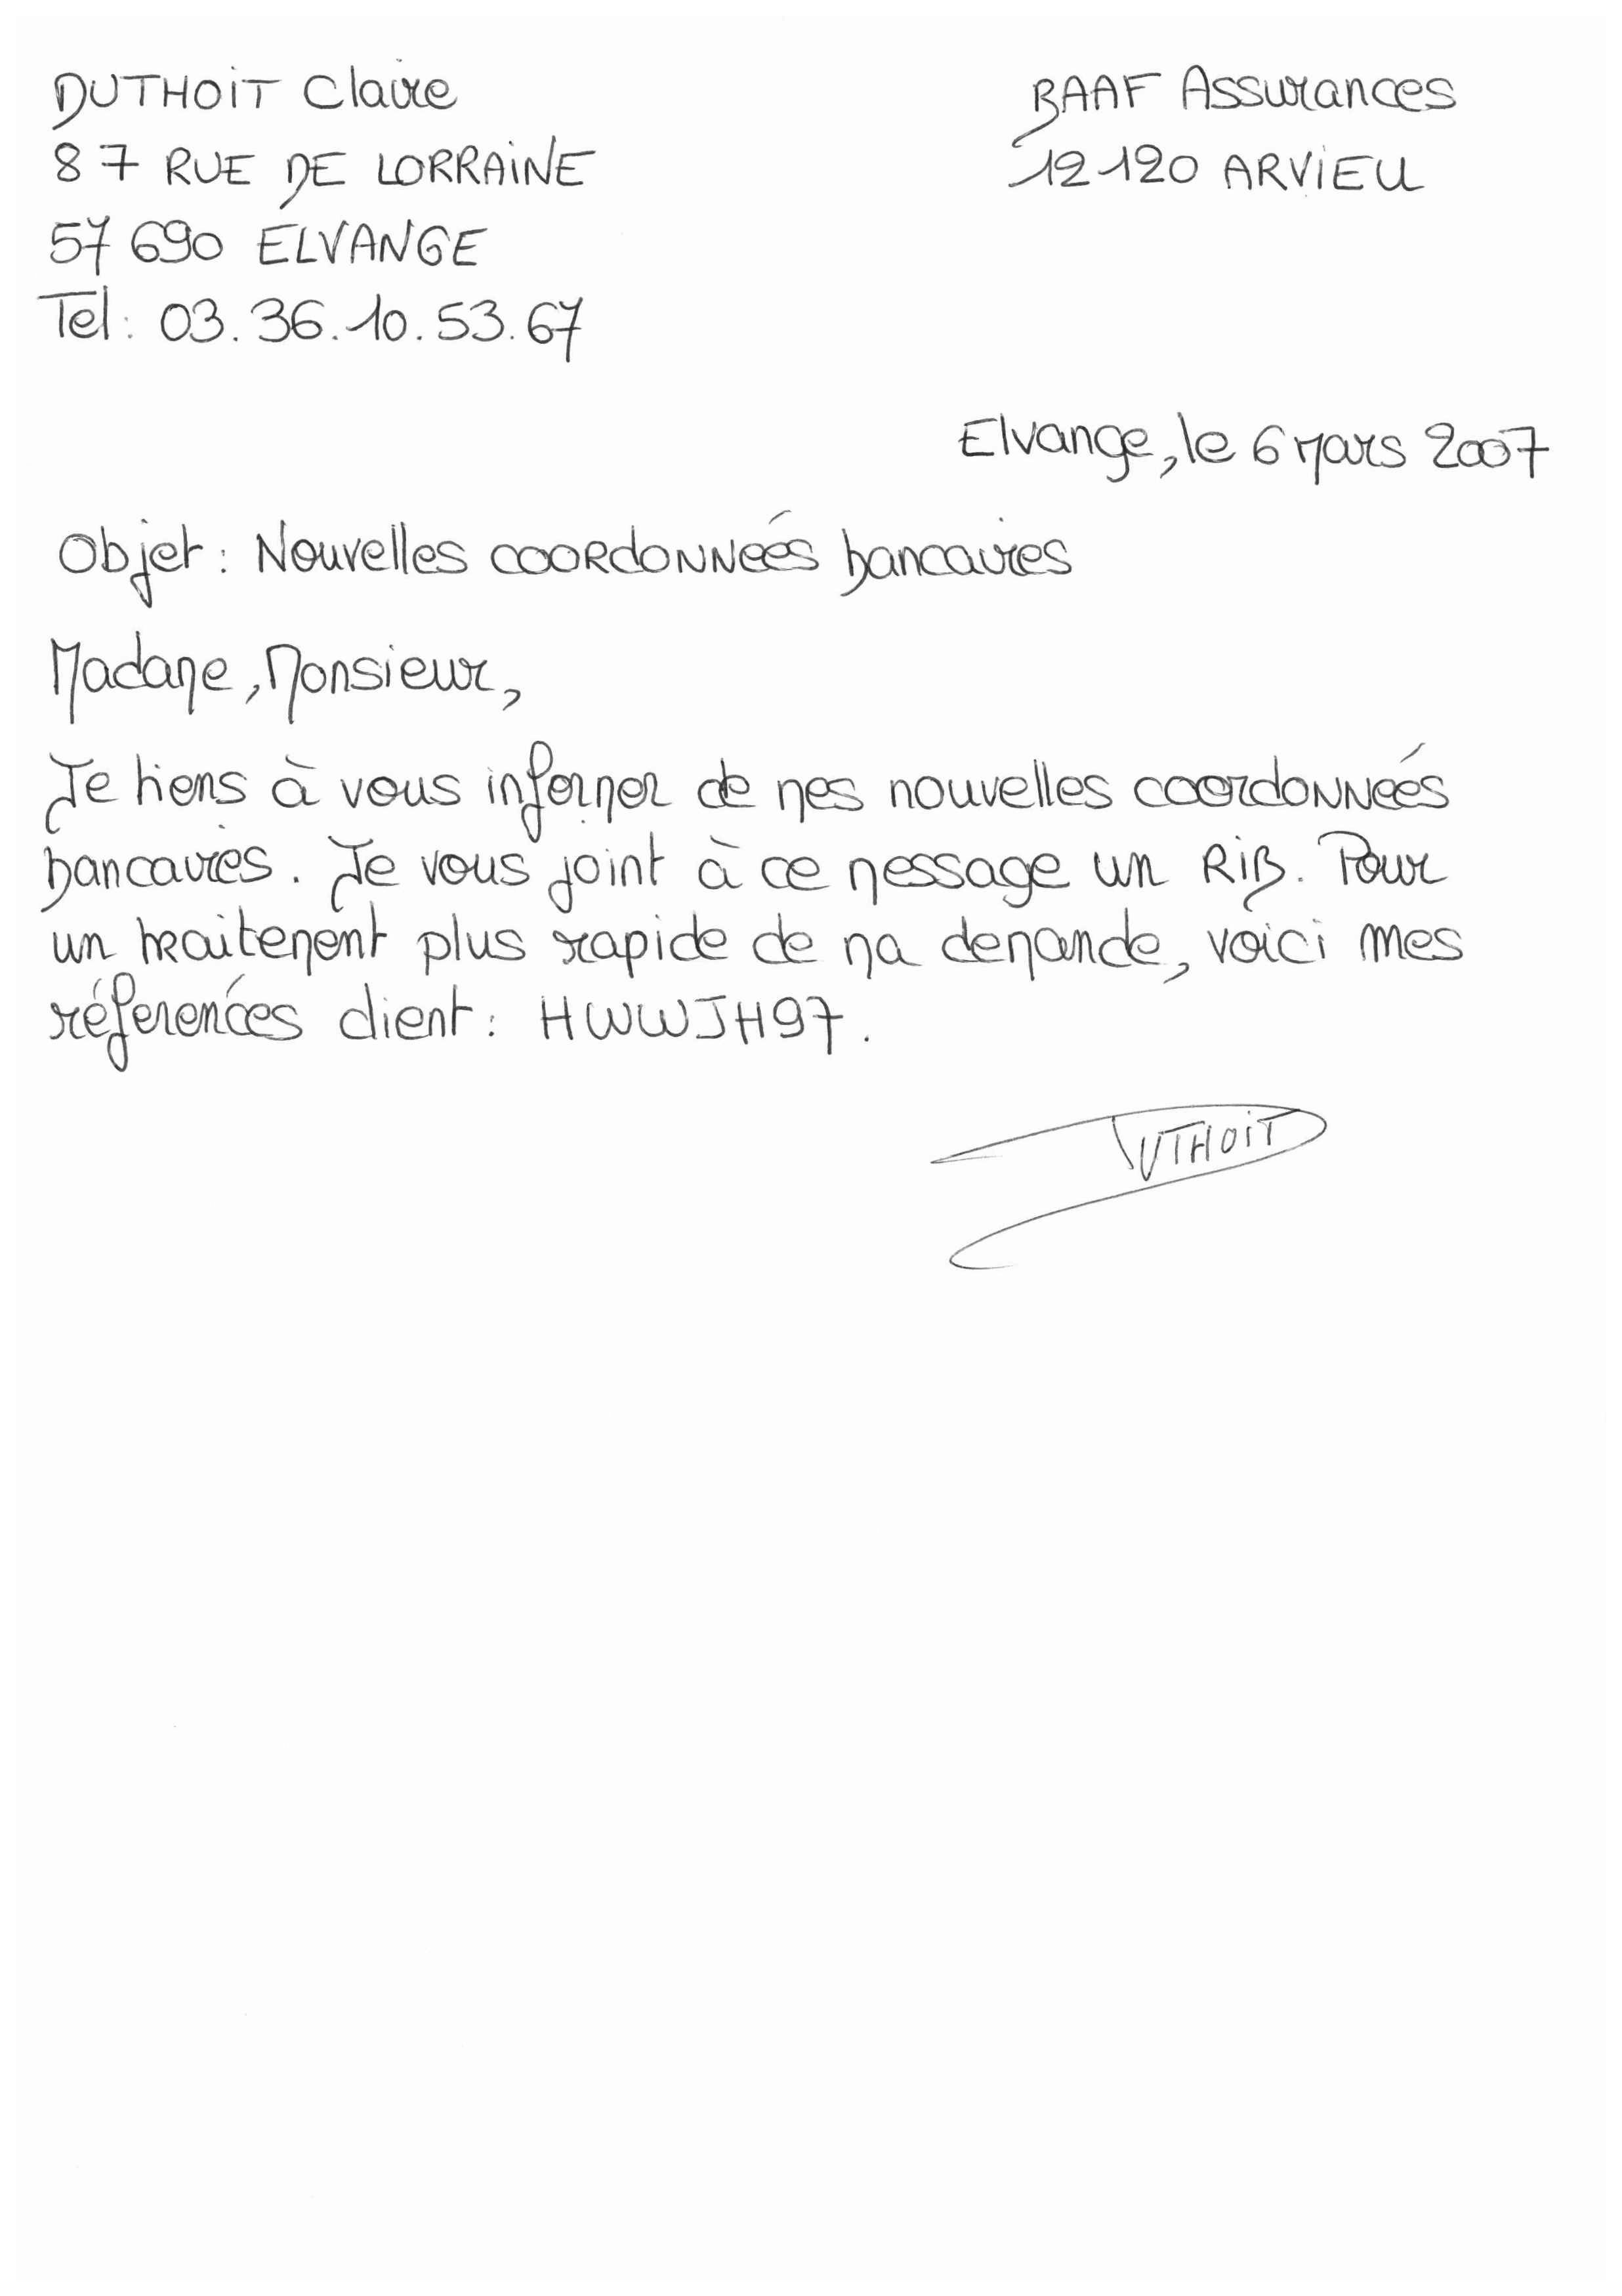 DUTHOIT Claire
87 RUE DE LORRAINE
57 690 ELVANGE
Tel : 03.36.10.53.67
BAAF Assurances
12120 ARVIEU
Elvange, le 6 mars 2007
Objet : Nouvelles coordonnées bancaires
Madame, Monsieur,
Je tiens à vous informer de mes nouvelles coordonnées
bancaires. Je vous joint à ce message un RIB. Pour
un traitement plus rapide de ma demande, voici mes
références client : HWWJH97.
DUTHOIT